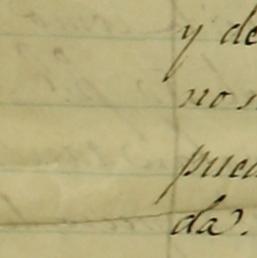 y de
no s
pued
da.